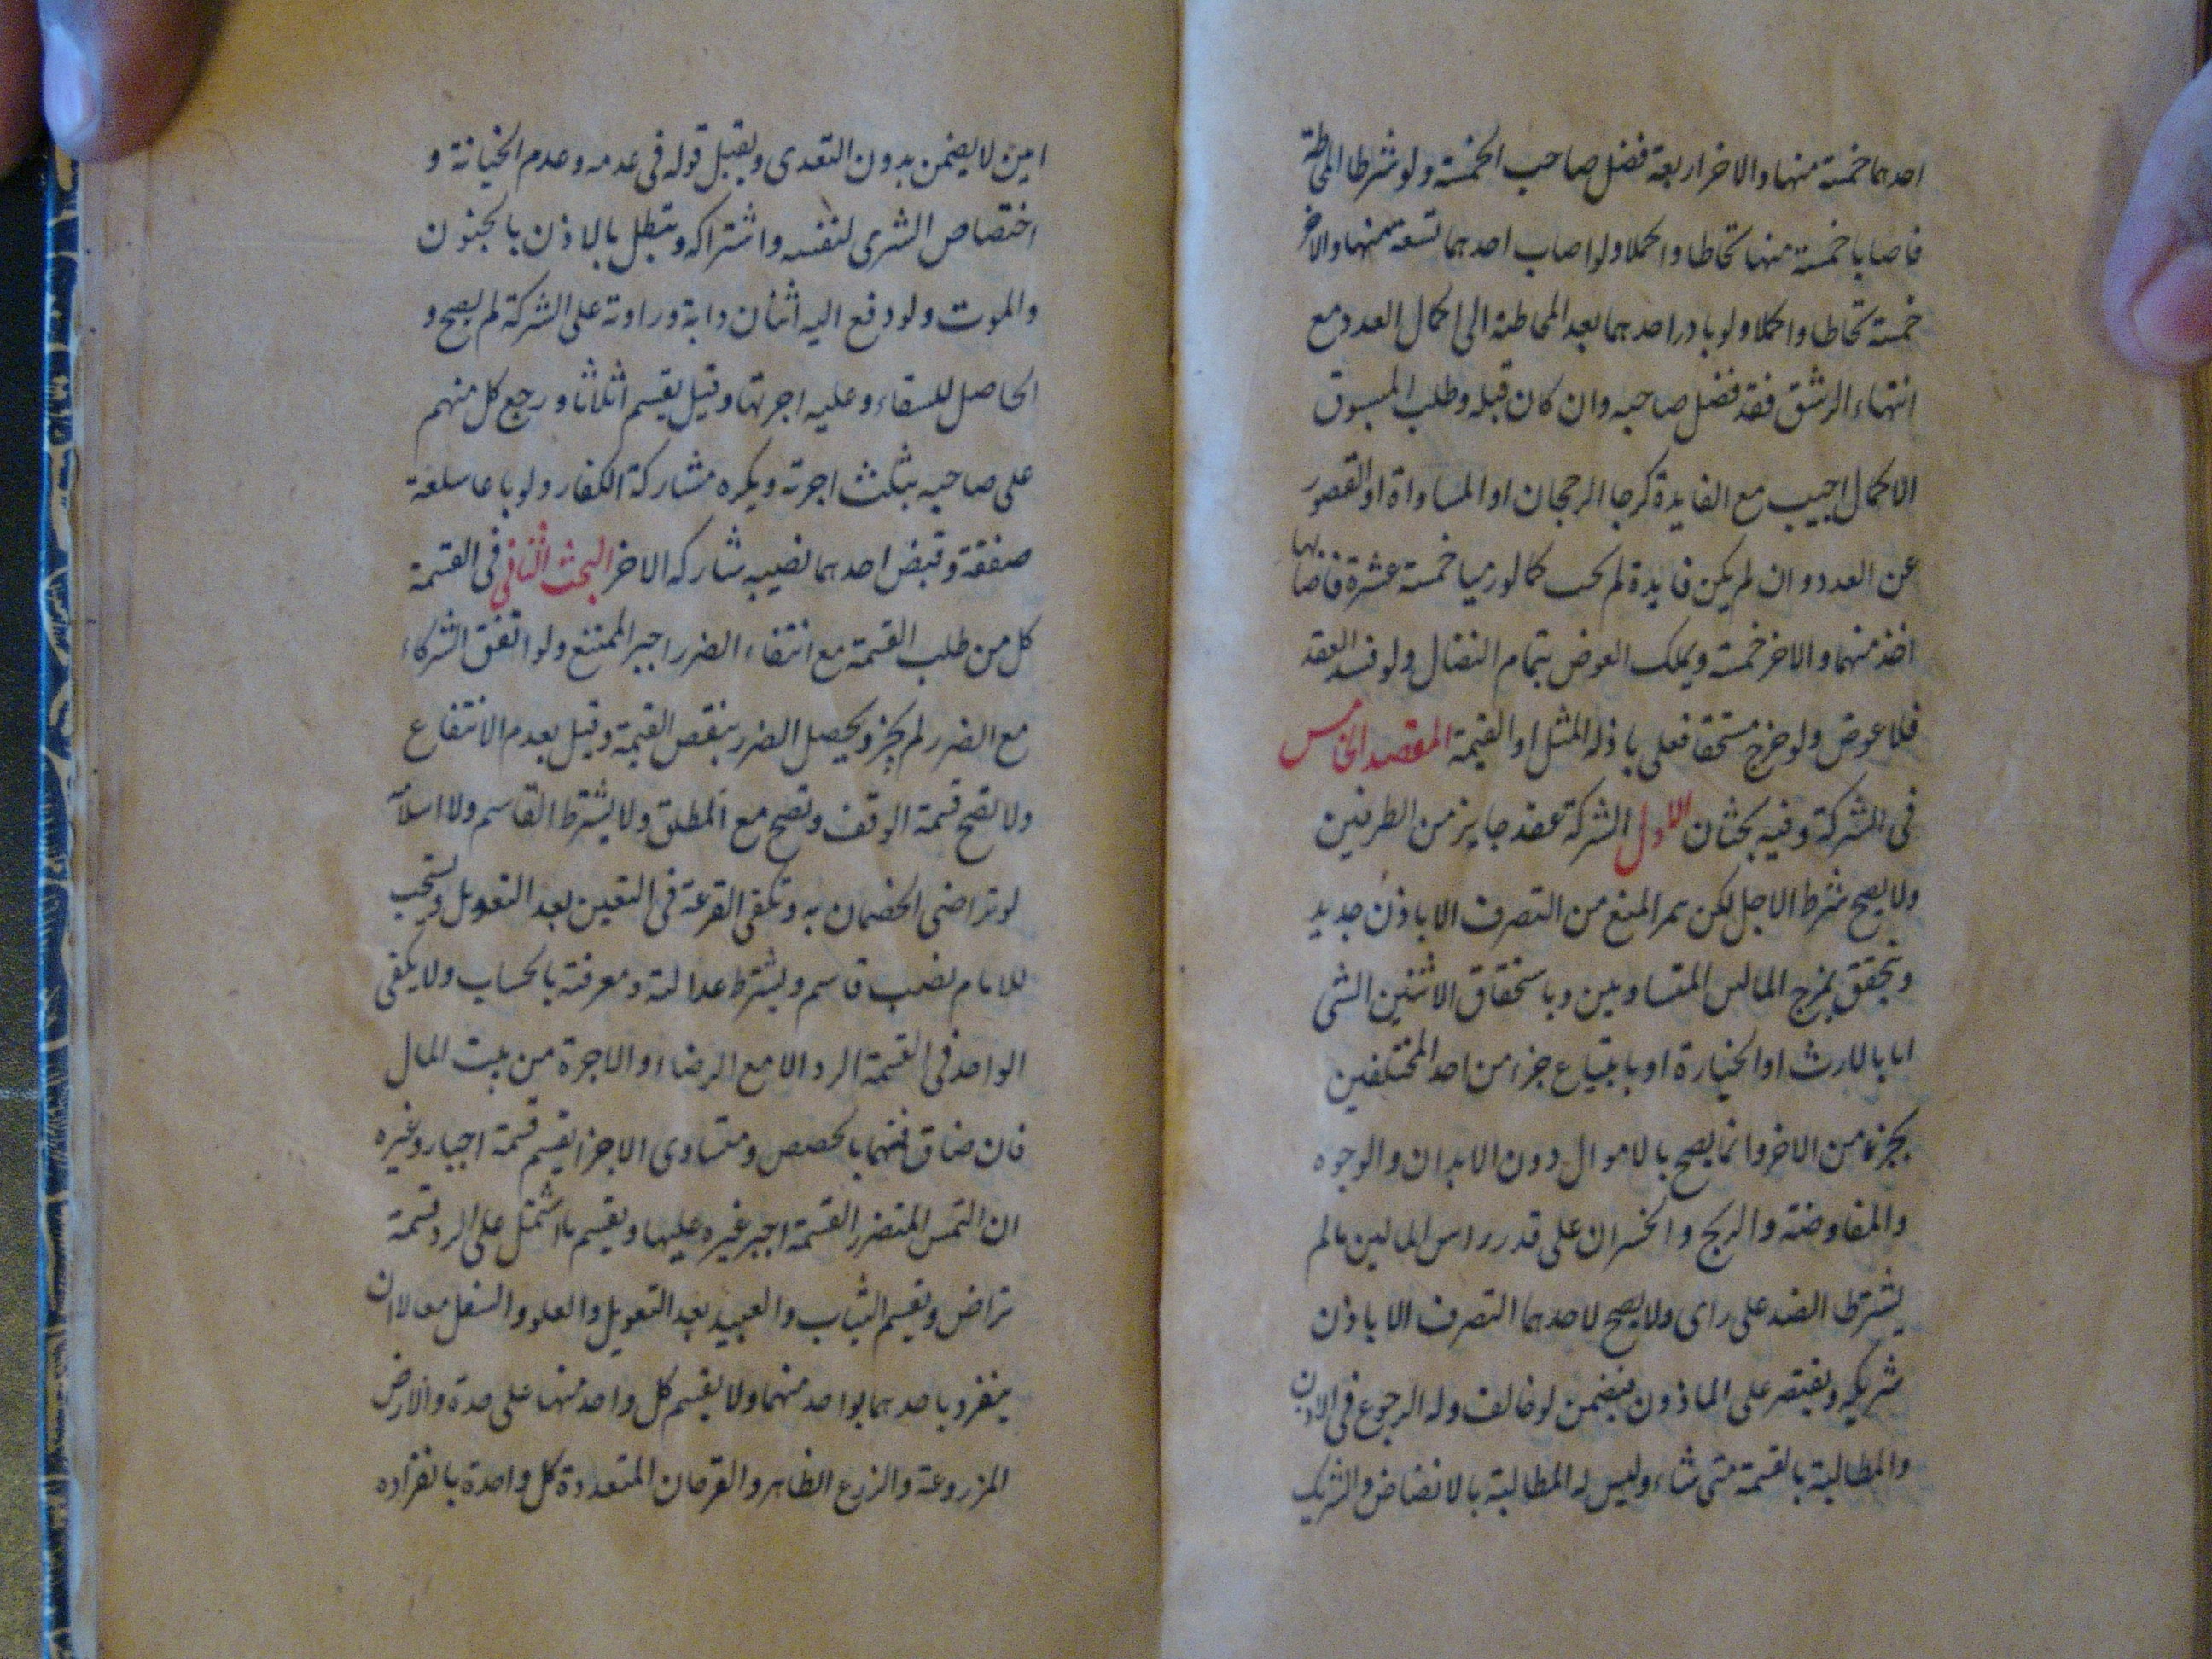 احدهما خمسة منها والاخر اربعة فضل صاحب الخمسة ولو شرطا المحاطة
فاصابا خمسة منها تحاطا واكملا ولو اصاب احدهما تسعة منها والاخر
خمسة تحاطا واكملا ولو بادر احدهما بعد المحاطة الى اكمال العدد مع
انتهاء الرشق فقد فضل صاحبه وان كان قبله وطلب المسبوق
الاكمال اجيب مع الفايدة كرجا الرجحان او المساواة او القصور
عن العدد وان لم يكن فايدة لم يجب كما لو رميا خمسة عشرة فاصابها
احد منهما والاخر خمسة ويملك العوض بتمام النضال ولو فسد العقد
فلا عوض ولو خرج مستحقا فعلى باذله المثل او القيمة المقصد الخامس
فى الشركة وفيه بحثان الاول الشركة عقد جايز من الطرفين
ولا يصح شرط الاجل لكن يمر المنع من التصرف الا باذن جديد
ويتحقق بمزج المالين المتساويين وباستحقاق الاثنين الشى
اما بالارث او الحيازة او بابتياع جزء من احد المختلفين
بجزء من الاخر وانما يصح بالاموال دون الابدان والوجوه
والمفاوضة والربح والخسران على قدر راس المالين مالم
يشترط الضد على راى ولا يصح لاحدهما التصرف الا باذن
شريكه ويقتصر على الماذون فيضمن لو خالف وله الرجوع فى الاذن
والمطالبة بالقسمة متى شاء وليس له المطالبة بالانضاض والشريك
امين لا يضمن بدون التعدى ويقبل قوله فى عدمه وعدم الخيانة و
اختصاص الشرى لنفسه واشتراكه وتبطل بالاذن بالجنون
والموت ولو دفع اليه اثنان دابة وراوية على الشركة لم يصح و
الحاصل للسقاء وعليه اجرتها وقيل يقسم اثلاثا ورجع كل منهم
على صاحبه بثلث اجرته ويكره مشاركة الكفار ولو باعا سلعة
صفقة وقبض احدهما نصيبه شاركه الاخر البحث الثانى فى القسمة
كل من طلب القسمة مع انتفاء الضرر اجبر الممتنع ولو اتفق الشركاء
مع الضرر لم يجز ويحصل الضرر بنقص القيمة وقيل بعدم الانتفاع
ولا تصح قسمة الوقف وتصح مع المطلق ولا يشترط القاسم ولا اسلامه
لو تراضى الخصمان به وتكفى القرعة فى التعيين بعد التعديل ويستحب
للامام نصب قاسم ويشترط عدالته ومعرفته بالحساب ولا يكفى
الواحد فى القسمة الرد الا مع الرضاء والاجرة من بيت المال
فان ضاق فمنهما بالحصص ومتساوى الاجزا يقسم قسمة اجبار وغيره
ان التمس المتضرر القسمة اجبر غيره عليها ويقسم ما اشتمل على الرد قسمة
تراض ويقسم الثياب والعبيد بعد التعديل والعلو والسفل معا لا ان
ينفرد باحدهما بواحد منهما ولا يقسم كل واحد منها على حدة والارض
المزروعة والزرع الظاهر والقرحان المتعددة كل واحدة بانفراده